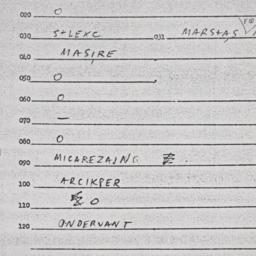 020 O
030 S+LEKC 031 MARS+AS
040 MASIRE
050 O
060 O
070 —
080 O
090 MICAREZAJNG
100 ARCIKPER
110 O
120 ONDERVANT